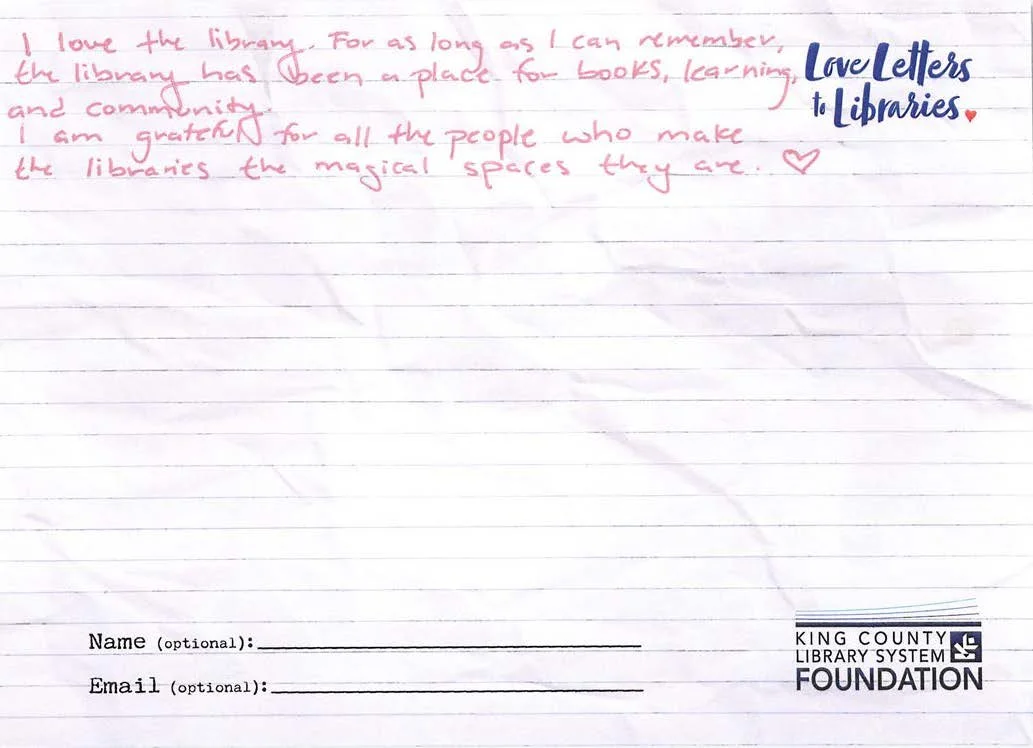 I love the library. For as long as I can remember,
the library has been a place for books, learning,
and community.
I am grateful for all the people who make
the libraries the magical spaces they are. ♡
Love Letters
to Libraries.
Name (optional):
Email (optional):
KING COUNTY
LIBRARY SYSTEM
FOUNDATION